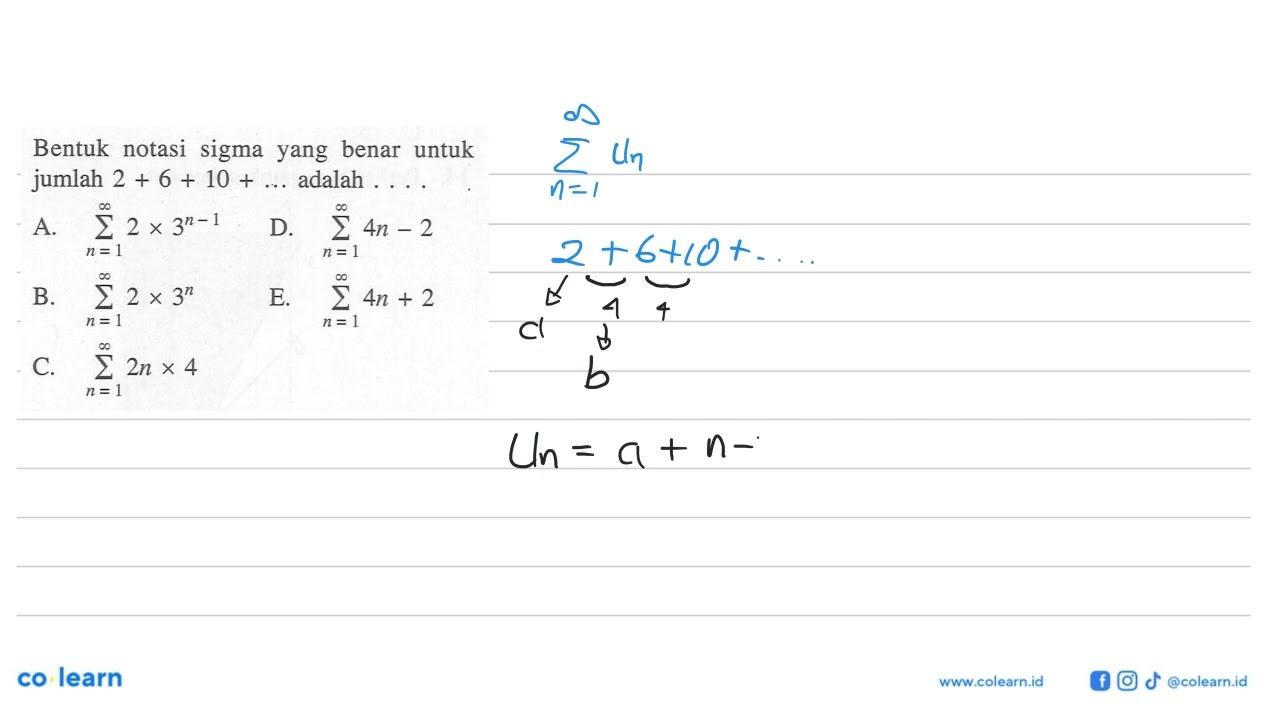 Bentuk notasi sigma yang benar untuk
jumlah 2 + 6 + 10 + ... adalah . . . .
A. ∞ Σ n = 1 2 × 3ⁿ⁻¹ D. ∞ Σ n = 1 4n – 2
B. ∞ Σ n = 1 2 × 3ⁿ E. ∞ Σ n = 1 4n + 2
C. ∞ Σ n = 1 2n × 4
∞
Σ Un
n=1
2 + 6+10+.....
4 4
a
b
Un = a + n -
co learn
www.colearn.id @colearn.id